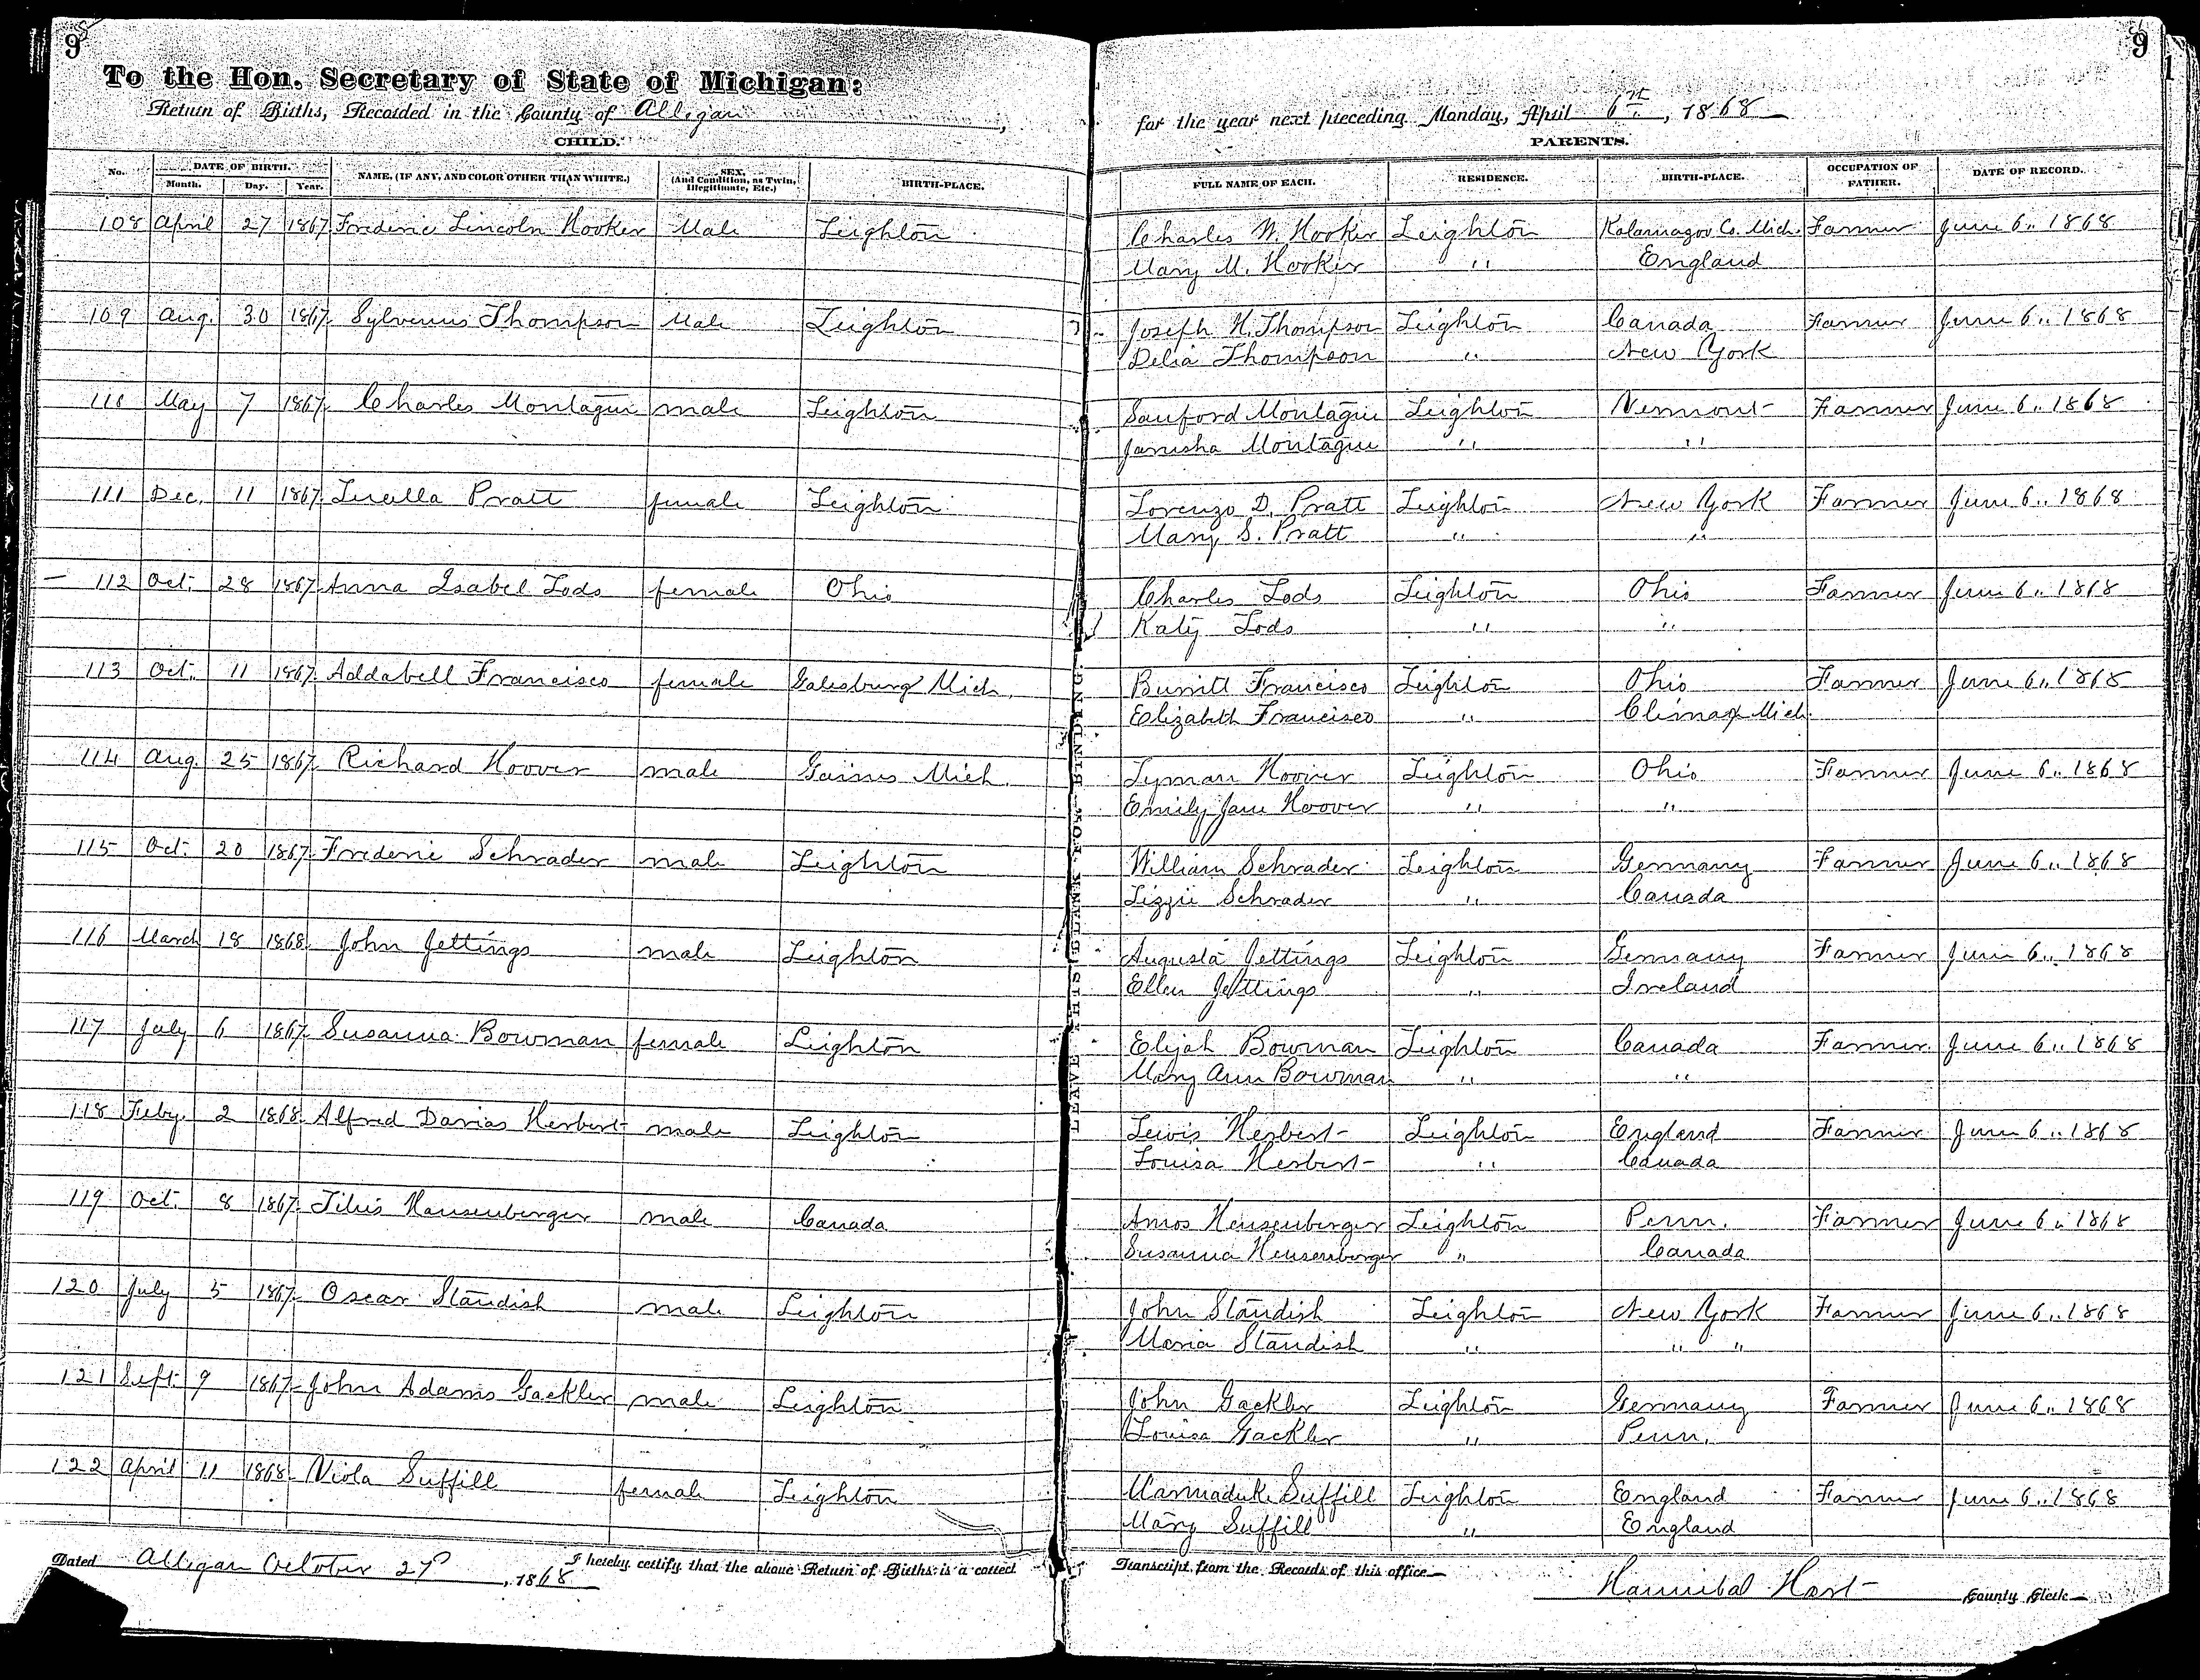 9
9
To the Hon. Secretary of State of Michigan:
Return of Births, Recorded in the County of Alligan,
for the year next preceding Monday, April 6th, 1868
CHILD.
PARENTS.
No. DATE OF BIRTH. NAME, (IF ANY, AND COLOR OTHER THAN WHITE.) SEX, (And Condition, as Twin, Illegitimate, Etc.) BIRTH-PLACE. FULL NAME OF EACH. RESIDENCE. BIRTH-PLACE. OCCUPATION OF FATHER. DATE OF RECORD.
Month. Day. Year.
108 April 27 1867 Frederic Lincoln Hooker Male Leighton Charles W. Hooker Leighton Kalamazoo Co. Mich. Farmer June 6.. 1868
Mary M. Hooker " England
109 Aug. 30 1867. Sylvenus Thompson Male Leighton Joseph H. Thompson Leighton Canada Farmer June 6.. 1868
Delia Thompson " New York
110 May 7 1867. Charles Montague male Leighton Sanford Montague Leighton Vermont Farmer June 6.. 1868
Janisha Montague " "
111 Dec. 11 1867. Luella Pratt female Leighton Lorenzo D. Pratt Leighton New York Farmer June 6.. 1868
Mary S. Pratt " "
112 Oct. 28 1867. Anna Isabel Tods female Ohio Charles Tods Leighton Ohio Farmer June 6.. 1868
Katy Tods " "
113 Oct. 11 1867. Addabell Francisco female Galesburg Mich. Burritt Francisco Leighton Ohio Farmer June 6.. 1868
Elizabeth Francisco " Climax Mich.
114 Aug. 25 1867. Richard Hoover male Gaines Mich. Lyman Hoover Leighton Ohio Farmer June 6.. 1868
Emily Jane Hoover " "
115 Oct. 20 1867. Frederic Schrader male Leighton William Schrader Leighton Germany Farmer June 6.. 1868
Lizzie Schrader " Canada
116 March 18 1868. John Jettings male Leighton Augusta Jettings Leighton Germany Farmer June 6.. 1868
Ellen Jettings " Ireland
117 July 6 1867. Susanna Bowman female Leighton Elijah Bowman Leighton Canada Farmer June 6.. 1868
Mary Ann Bowman " "
118 Feby. 2 1868. Alfred Darias Herbert male Leighton Lewis Herbert Leighton England Farmer June 6.. 1868
Louisa Herbert " Canada
119 Oct. 8 1867. Titus Hansenberger male Canada Amos Hensenberger Leighton Penn. Farmer June 6.. 1868
Susanna Hensenberger " Canada
120 July 5 1867. Oscar Standish male Leighton John Standish Leighton New York Farmer June 6.. 1868
Maria Standish " " "
121 Sept. 9 1867. John Adams Gackler male Leighton John Gackler Leighton Germany Farmer June 6.. 1868
Louisa Gackler " Penn.
122 April 11 1868. Viola Suffill female Leighton Marmaduke Suffill Leighton England Farmer June 6.. 1868
Mary Suffill " England
LEAVE THIS BLANK FOR BINDING.
Dated Alligan October 27, 1868 I hereby certify that the above Return of Births is a correct Transcript from the Records of this office
Hannibal Hart County Clerk